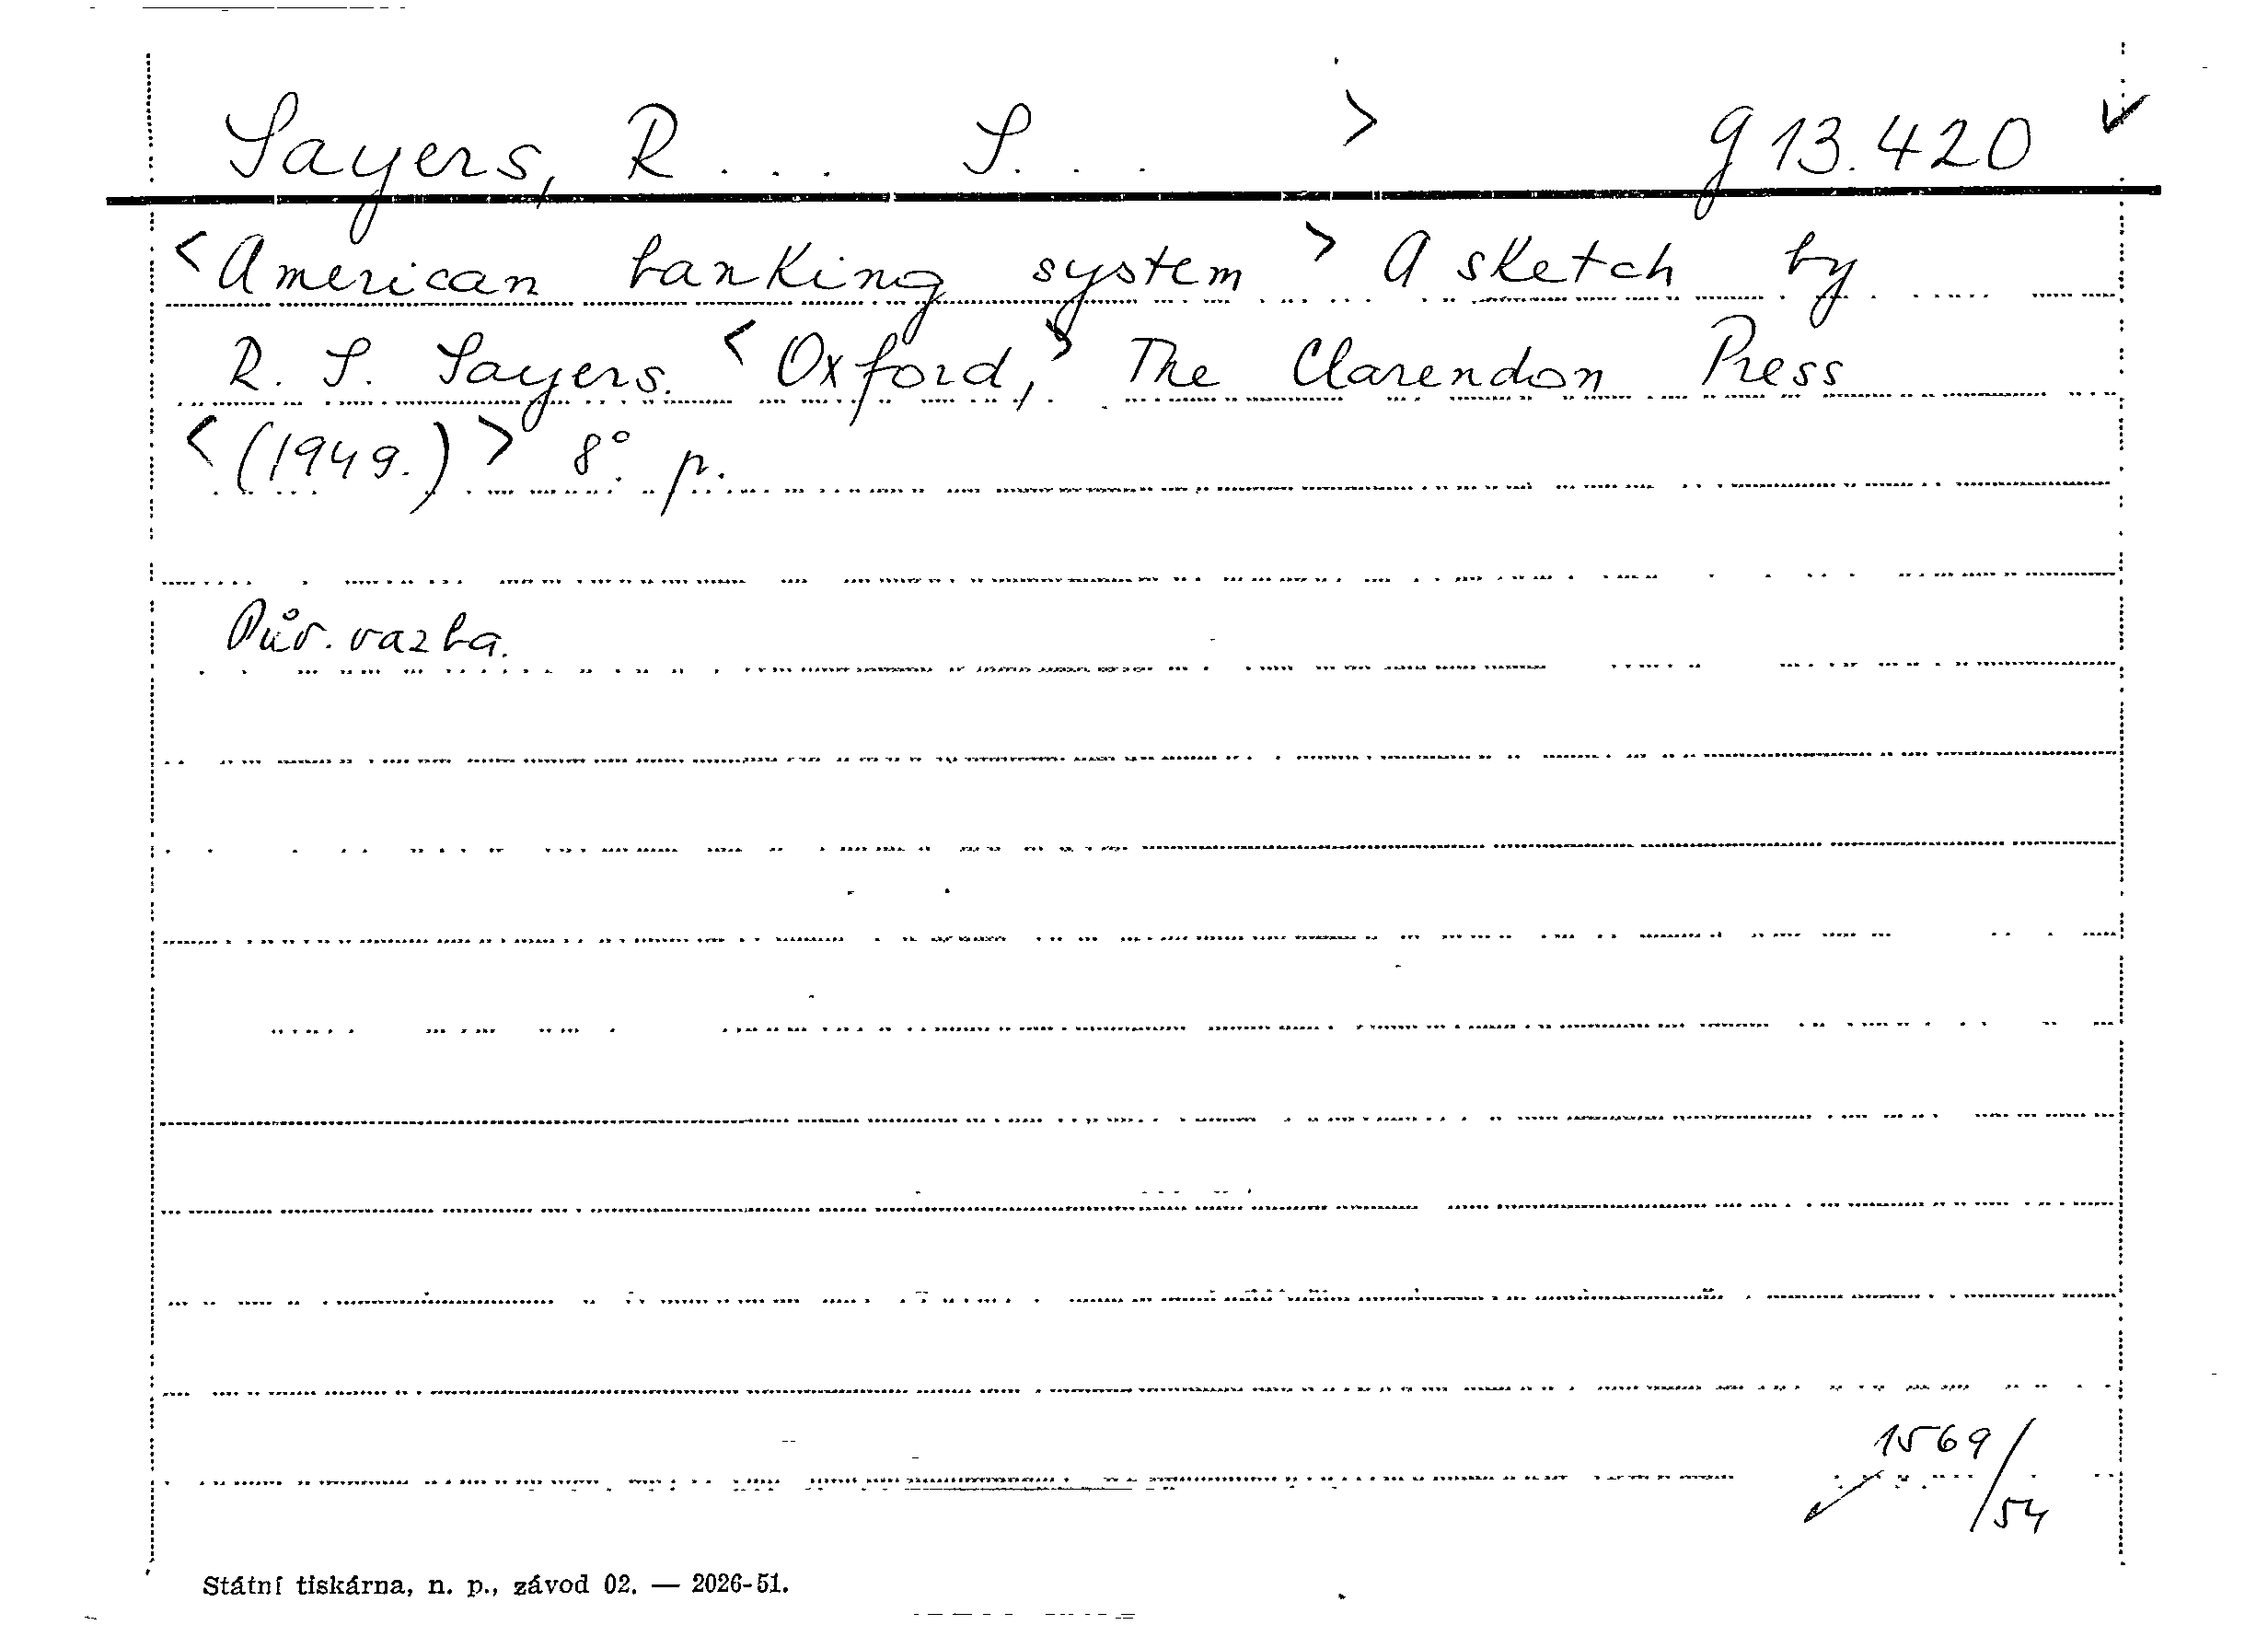 Sayers, R... S... > g 13.420 ✓
<American banking system> A sketch by
R. S. Sayers. <Oxford,> The Clarendon Press
<(1949.)> 8°. p.
Pův. vazba.
1569/54
Státní tiskárna, n. p., závod 02. — 2026-51.